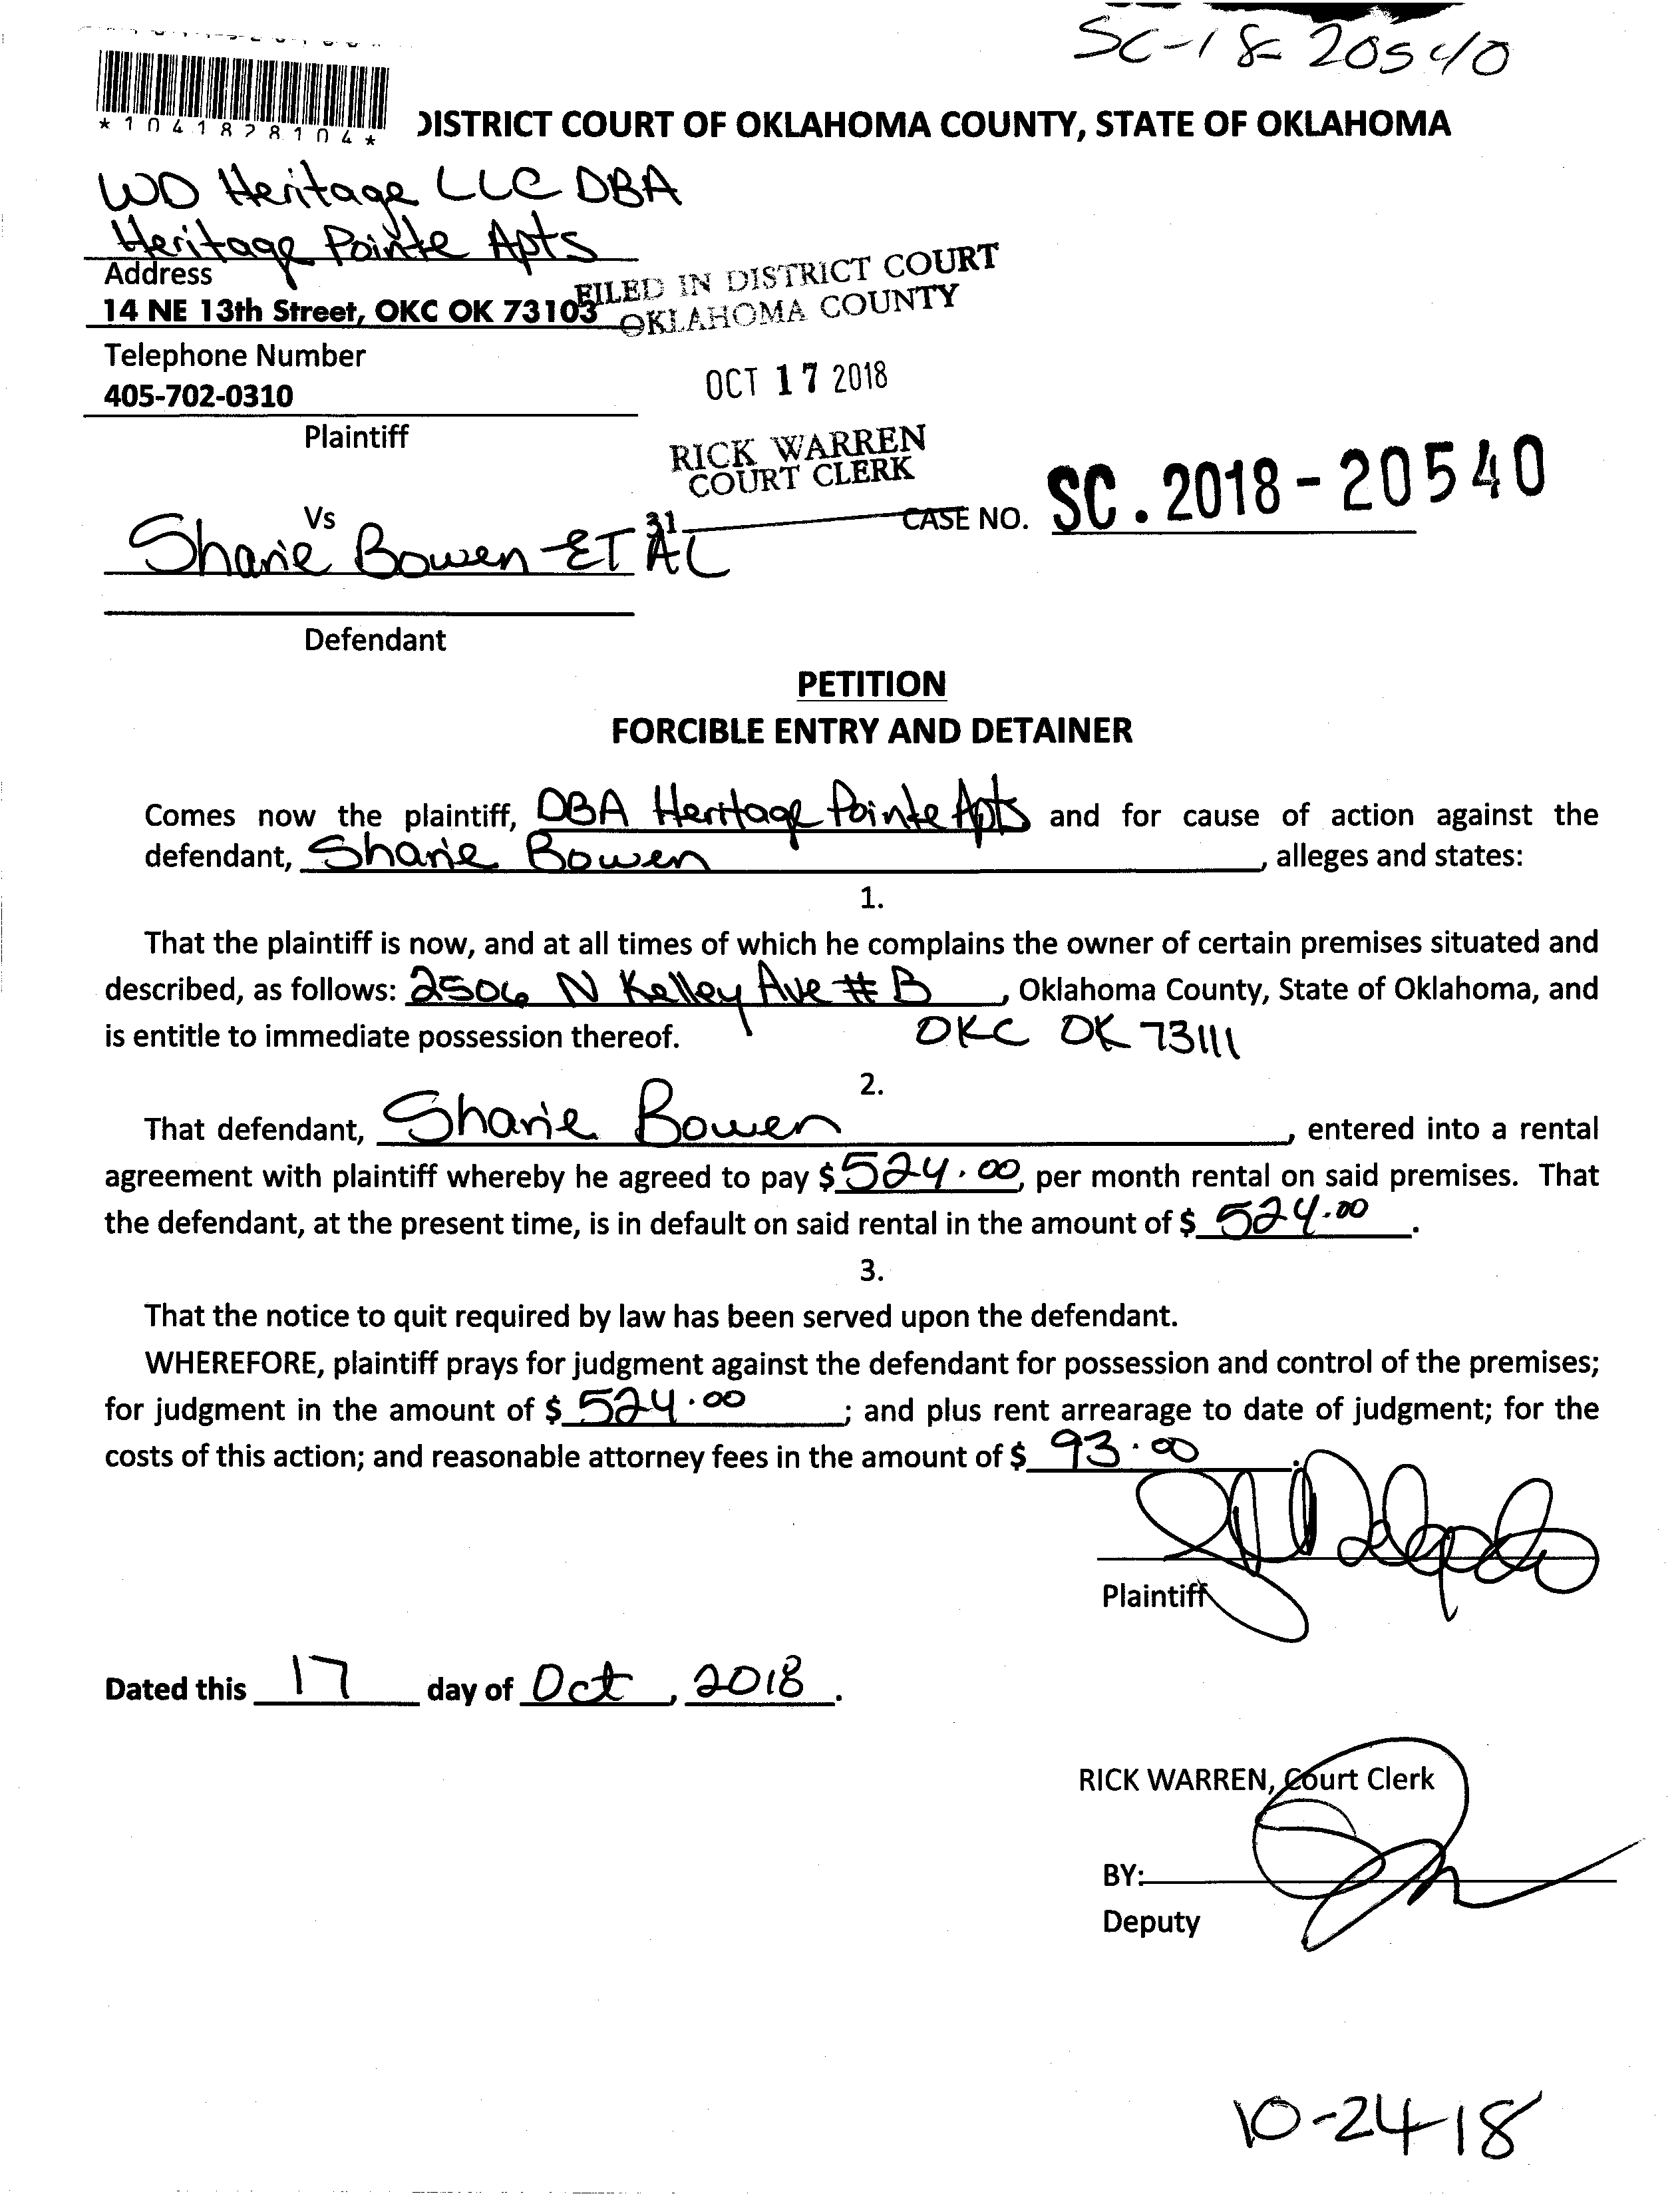 SC-18-20540
*1041828104*
DISTRICT COURT OF OKLAHOMA COUNTY, STATE OF OKLAHOMA
WD Heritage LLC DBA
Heritage Pointe Apts
Address
14 NE 13th Street, OKC OK 73103
FILED IN DISTRICT COURT
OKLAHOMA COUNTY
Telephone Number
405-702-0310
OCT 17 2018
Plaintiff
RICK WARREN
COURT CLERK
Vs
31
CASE NO. SC.2018-20540
Sharie Bowen ET AL
Defendant
PETITION
FORCIBLE ENTRY AND DETAINER
Comes now the plaintiff, DBA Heritage Pointe Apts and for cause of action against the
defendant, Sharie Bowen, alleges and states:
1.
That the plaintiff is now, and at all times of which he complains the owner of certain premises situated and
described, as follows: 2506 N Kelley Ave # B, Oklahoma County, State of Oklahoma, and
is entitle to immediate possession thereof. OKC OK 73111
2.
That defendant, Sharie Bowen, entered into a rental
agreement with plaintiff whereby he agreed to pay $ 524.00, per month rental on said premises. That
the defendant, at the present time, is in default on said rental in the amount of $ 524.00.
3.
That the notice to quit required by law has been served upon the defendant.
WHEREFORE, plaintiff prays for judgment against the defendant for possession and control of the premises;
for judgment in the amount of $ 524.00; and plus rent arrearage to date of judgment; for the
costs of this action; and reasonable attorney fees in the amount of $ 93.00.
Plaintiff
Dated this 17 day of Oct, 2018.
RICK WARREN, Court Clerk
BY:
Deputy
10-24-18